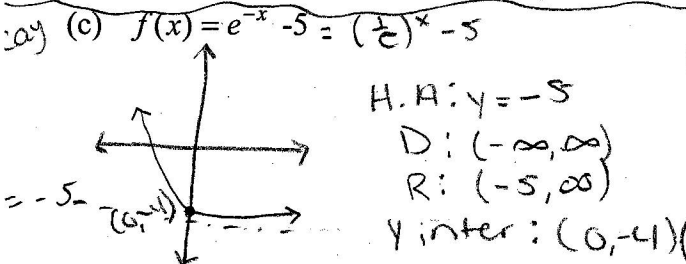 (c) f(x) = e^{-x} - 5 = (1/e)^x - 5
H.A: y = -5
D: (-∞, ∞)
R: (-5, ∞)
= -5
(0, -4)
Y inter: (0, -4)(